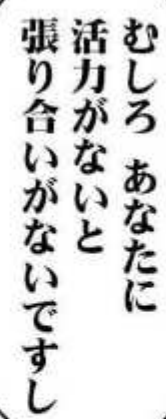 むしろ　あなたに
活力がないと
張り合いがないですし